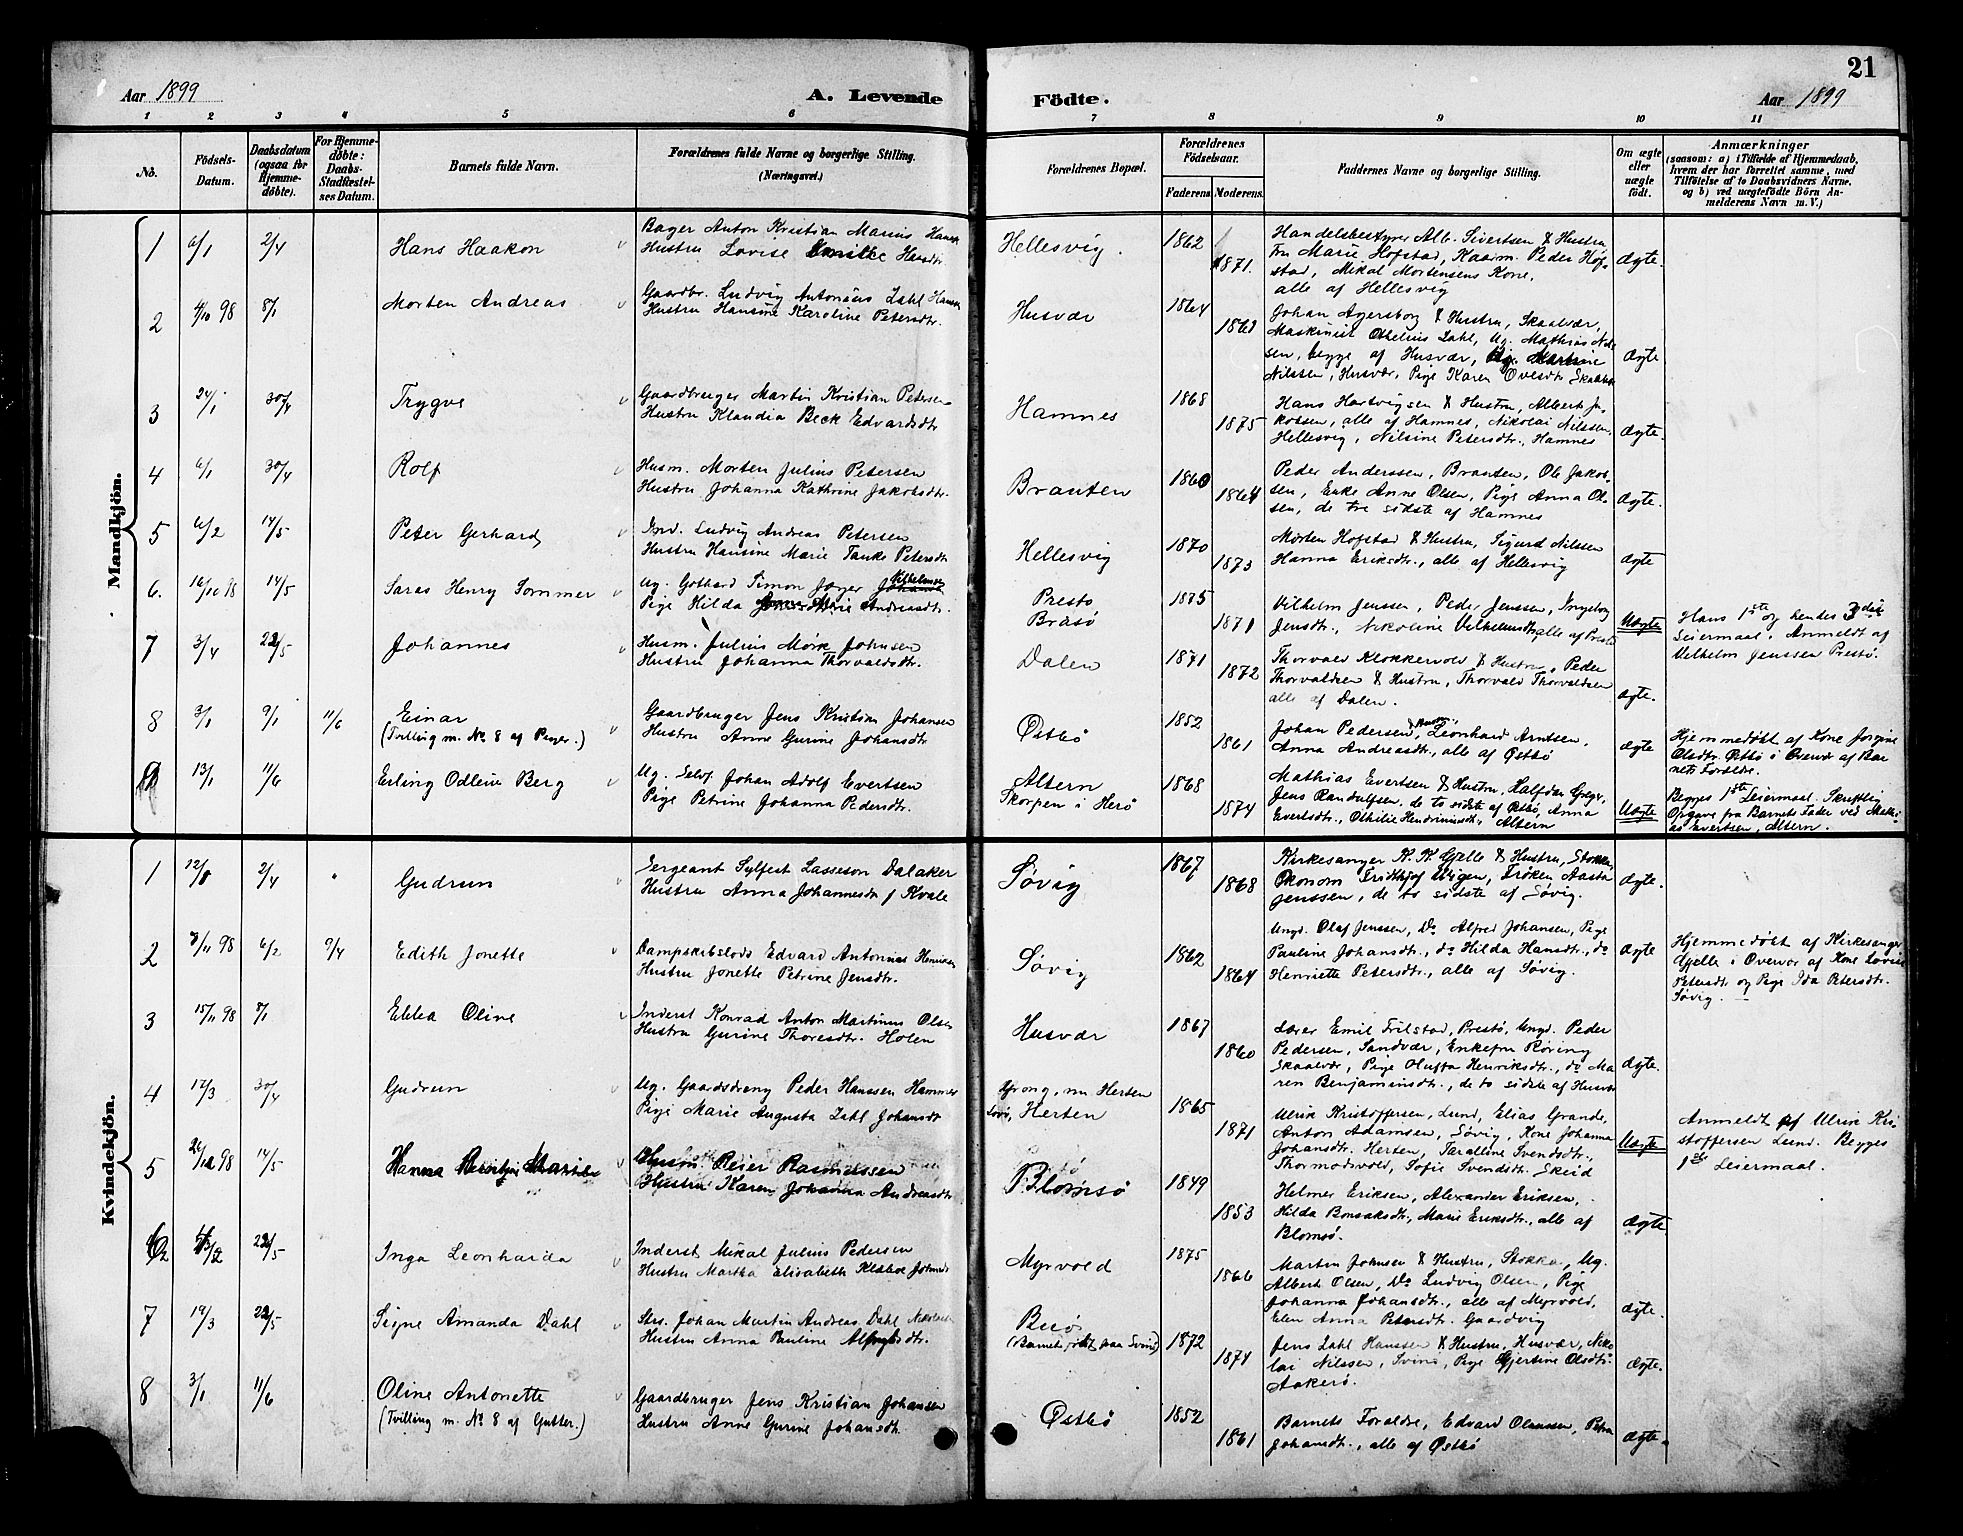 21
Aar 1899
A. Levende
Födte.
Aar 1899
1 2 3 4 5 6 7 8 9 10 11
No.
Födsels-
Datum.
Daabsdatum
(ogsaa for
Hjemme-
döbte).
For Hjemme-
döbte:
Daabs-
Stadfæstel-
ses Datum.
Barnets fulde Navn.
Forældrenes fulde Navne og borgerlige Stilling.
(Næringsvei.)
Forældrenes Bopæl.
Forældrenes
Födselsaar.
Faderens
Moderens.
Faddernes Navne og borgerlige Stilling.
Om ægte
eller
uægte
födt.
Anmærkninger
(saasom: a) i Tilfælde af Hjemmedaab,
hvem der har forrettet samme, med
Tilföielse af to Daabsvidners Navne,
og b) ved uægtefödte Börn An-
melderens Navn m. V.)
Mandkjön.
1 6/1 2/4 Hans Haakon
Bager Anton Kristian Marius
Hustru Lovise
Hellesvig. 1862
1871.
Handelsbestyrer Alb. Sivertsen & Hustru
Fru Marie Hofstad, Kaarm. Peder Hof-
stad, Mikal Mortensens Kone,
alle af Hellesvig
Ægte.
2 4/10 98 8/1 Morten Andreas
Gaardbr. Ludvig Antonius Zahl
Hustru Hansine Karoline Petersdtr.
Husvær 1864
Johan Agersborg & Hustru, Skaalvær,
Maskinist Othelius Zahl, Ug. Mathias Nil-
sen, begge af Husvær,
Nilssen, Husvær, Pige Karen Ovesdtr.
Ægte
3 24/1 30/4 Trygve
Gaardbruger Martin Kristian Petersen
Hustru Klaudia Beck Edvardsdtr
Hamnes 1868
1875
Hans Hartvigsen & Hustru, Albert Ja-
kobsen, alle af Hamnes, Nikolai Nilssen,
Hellesvig, Nilsine Petersdtr., Hamnes
Ægte.
4 6/1 30/4 Rolf
Husm. Morten Julius Petersen
Hustru Johanna Kathrine Jakobsdtr.
Branten 1860
1864
Peder Anderssen, Branten, Ole Jakob-
sen, Enke Anne Olsen, Pige Anna Ol-
sen, de tre sidste af Hamnes
Ægte.
5 6/2 14/5 Peter Gerhard
Ludvig Andreas Petersen
Hustru Hansine Marie Tanke Petersdtr
Hellesvig 1870
1873
Morten Hofstad & Hustru, Sigurd Nilssen
Hanna Eriksdtr., alle af Hellesvig
Ægte
6. 16/10 98 14/5 Saras Henry Sommer
Ug. Gothard Simon
Pige Hilda Andreasdtr.
Prestø
Bråsø
1875
1871
Vilhelm Jenssen, Peder Jenssen, Ingeborg
Jensdtr., Nikoline Vilhelmsdtr, alle af Prestø
Uægte
Hans 1ste og hendes 3die
Leiermaal. Anmeldt af
Vilhelm Jenssen Prestø.
7 3/4 22/5 Johannes
Husm. Julius Mørk Johnsen
Hustru Johanna Thorvaldsdtr.
Dalen 1871
1872
Thorvald Klokkervold & Hustru, Peder
Thorvaldsen & Hustru, Thorvald Thorvaldsen
alle af Dalen.
Ægte.
8 3/1 9/1 11/6 Einar
(Tvilling m. No 8 af Piger.)
Gaardbruger Jens Kristian Johansen
Hustru Anne Gurine Johansdtr
Østbø 1852
1861
Johan Pedersen, Leonhard Arntsen,
Anna Andreasdtr., alle af Østbø
Ægte
Hjemmedøbt af Kone Jorgine
Olsdtr. Østbø i Overvær af Bar-
nets Forældre.
13/1 11/6 Erling Odleiv Berg
Ug. Selvf. Johan Adolf Evertsen
Pige Petrine Johanna Pedersdtr.
Altern
Skorpen i Herø
1868
1874
Mathias Evertsen & Hustru, Halfdan
Jens Randulfsen, de to sidste af Østbø, Anna
Evertsdtr., Othilie Hendriksdtr., Altern
Uægte
Begges 1ste Leiermaal. Skriftlig
Opgave fra Barnets Fader ved
Evertsen, Altern.
Kvindekjön.
1 12/8 2/4 Gudrun
Sergeant Sylfest Lasseson Dalaker
Hustru Anna Johannesdtr f Kvale
Søvig 1867
1868
Kirkesanger K. K. Gjelle & Hustru,
Økonom Fridthjof Wigen, Frøken Aasta
Jenssen, de to sidste af Søvig.
Ægte.
2 3/11 98 6/2 9/4 Edith Jonette
Dampskibslods Edvard Antonius
Hustru Jonette Petrine Jensdtr.
Søvig 1862
1864
Ungd. Olaf Jenssen, Do Alfred Johansen, Pige
Pauline Johansdtr., do Hilda Hansdtr., do
Henriette Petersdtr., alle af Søvig.
Ægte
Hjemmedøbt af Kirkesanger
Gjelle i Overvær af Kone Lovise
Petersdtr. og Pige Ida Petersdtr.
Søvig.
3 15/11 98 8/1 Ebba Oline
Inderst Konrad Anton Martinus Olsen
Hustru Gurine Thoresdtr. Holen
Husvær 1867
1860
Lærer Emil Frilstad, Prestø, Ungd. Peder
Pedersen, Sandvær, Enkefru Røring
Skaalvær, Pige Oluffa Henriksdtr., do Ma-
ren Benjaminsdtr., de to sidste af Husvær
Ægte.
4 12/3 30/4 Gudrun
Ug. Gaardsdreng Peder Hanssen Hammer
Pige Marie Augusta Zahl Johansdtr
Grong, nu Herten
Herten
1865
1871
Ulrik Kristoffersen, Lund, Elias Grande,
Anton Adamsen, Søvig, Kone Johanna
Johansdtr. Herten, Taralline Svendsdtr.,
Thormodsvold, Sofie Svendsdtr. Skeid
Uægte
Anmeldt af Ulrik Kri-
stoffersen Lund. Begges
1ste Leiermaal.
5 26/12 98 14/5 Hanna
Husm. Peier Rasmussen
Hustru Karen Johanna Andreasdtr
Blomsø 1849
1853
Helmer Eriksen, Alexander Eriksen,
Hilda Bonsaksdtr., Marie Eriksdtr., alle af
Blomsø.
Ægte
6 22/5 Inga Leonharda
Inderst Mikal Julius Pedersen
Hustru Martha Elisabeth Klæboe
Myrvold 1875
1866
Martin Johnsen & Hustru, Stokka, Ug.
Albert Olsen, Do Ludvig Olsen, Pige
Johanna Johansdtr., alle af Myrvold,
Elen Anna Petersdtr. Gaardvig
Ægte.
7 19/3 22/5 Signe Amanda Dahl
Strs. Johan Martin Andreas Dahl
Hustru Anna Pauline
(Barnet født paa Svinø) 1872
1874
Jens Zahl Hanssen & Hustru, Husvær, Niko-
lai Nilssen, Svinø, Pige Gjertine Olsdtr.
Aakerø.
Ægte.
8 3/1 11/6 Oline Antonette
(Tvilling m. No 8 af Gutter.)
Gaardbruger Jens Kristian Johansen
Hustru Anne Gurine Johansdtr.
Østbø 1852
1861
Barnets Forældre, Edvard Olaussen, Petra
Johansdtr., alle af Østbø
Ægte.